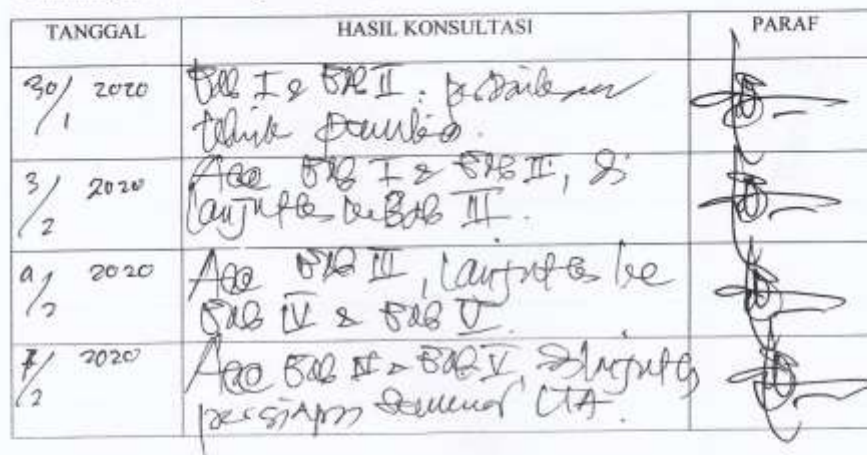 TANGGAL HASIL KONSULTASI PARAF
30/1 2020 BAB I & BAB II : perbaikan
teknik penulisan.
3/2 2020 Acc BAB I & BAB II, di
lanjutkan ke BAB III.
2020 Acc BAB III, lanjutkan ke
BAB IV & BAB V.
7/2 2020 Acc BAB IV & BAB V, dilanjutkan
persiapan seminar LTA.